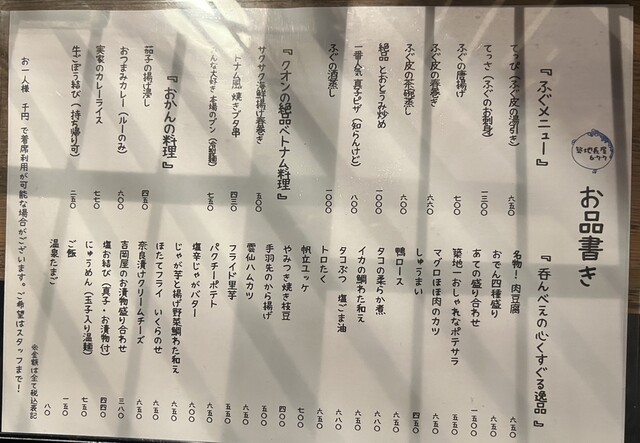 お品書き
築地長屋
『ふぐメニュー』
てっぴ(ふぐ皮の湯引き) 六五〇
てっさ(ふぐのお刺身) 一三〇〇
ふぐの唐揚げ 七〇〇
ふぐ皮の春巻き 六六〇
ふぐ皮の茶碗蒸し 六〇〇
絶品 とおとうみ炒め 一〇〇〇
一番人気 真子ピザ(知らんけど) 八〇〇
ふぐの酒蒸し 一〇〇〇
『クオンの絶品ベトナム料理』
サクサク海鮮揚げ春巻き 五〇〇
トナム風 焼きブタ串 四三〇
んな大好き・本場のブン(冷製麺) 七五〇
『おかんの料理』
茄子の揚げ浸し 四五〇
おつまみカレー(ルーのみ) 六〇〇
実家のカレーライス 七七〇
牛ごぼう結び(持ち帰り可) 二五〇
『呑んべえの心くすぐる逸品』
名物!肉豆腐 六五〇
おでん四種盛り 六五〇
あての盛り合わせ 一五〇〇
築地一おしゃれなポテサラ 五五〇
マグロほほ肉のカツ 六五〇
しゅうまい 四五〇
鴨ロース 六五〇
タコの柔らか煮 六八〇
イカの鯛わた和え 六五〇
タコぶつ 塩ごま油 六八〇
トロたく 六五〇
帆立ユッケ 七〇〇
やみつき焼き枝豆 四〇〇
手羽先のから揚げ 五〇〇
雲仙ハムカツ 六五〇
フライド里芋 五五〇
パクチーポテト 五五〇
塩辛じゃがバター 六五〇
じゃが芋と揚げ野菜鯛わた和え 六〇〇
ほたてフライ いくらのせ 六五〇
奈良漬けクリームチーズ 五五〇
吉岡屋のお漬物盛り合わせ 三八〇
塩お結び(真子・お漬物付) 四四〇
にゅうめん(玉子入り温麺) 七五〇
ご飯 一五〇
温泉たまご 八〇
※金額は全て税込表記
お一人様 千円 で着席利用が可能な場合がございます。ご希望はスタッフまで!